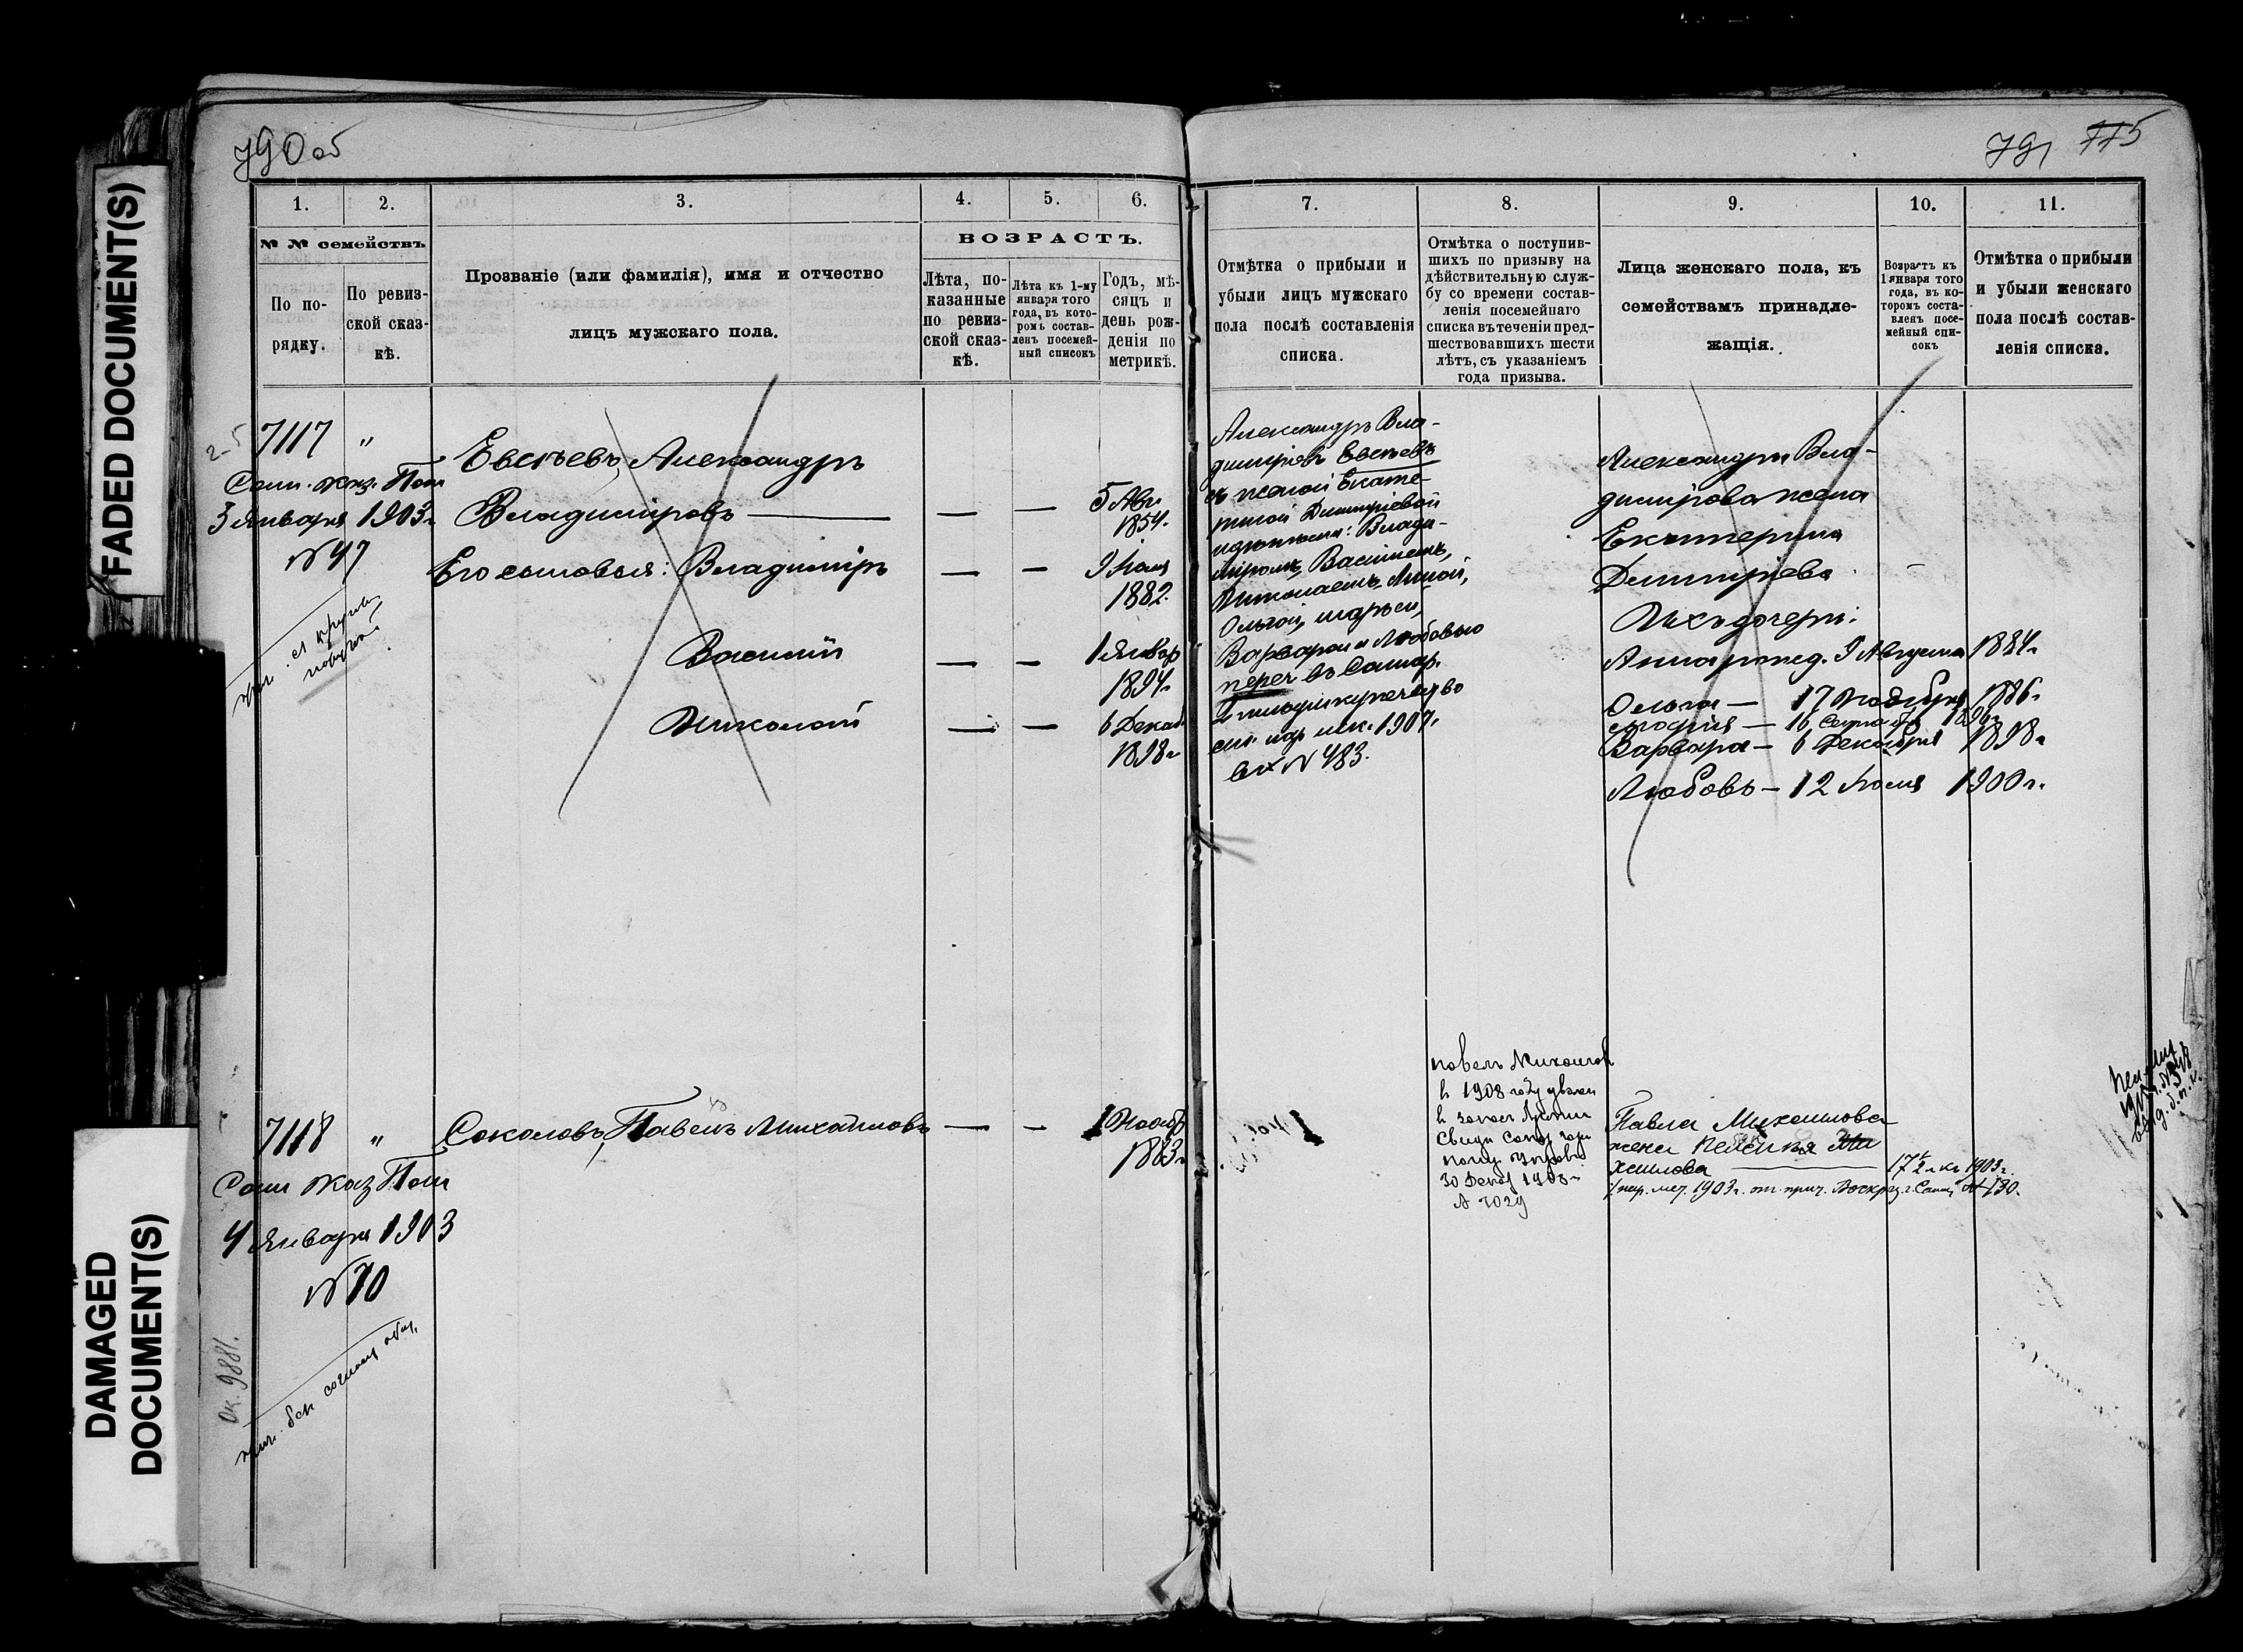 FADED DOCUMENT(S)
DAMAGED
DOCUMENT(S)
790 об
1.
2.
3.
4.
5.
6.
№ № семействъ
По по-
рядку.
По ревиз-
ской сказ-
кѣ.
Прозваніе (или фамилія), имя и отчество
лицъ мужскаго пола.
ВОЗРАСТЪ.
Лѣта, по-
казанные
по ревиз-
ской сказ-
кѣ.
Лѣта къ 1-му
января того
года, въ кото-
ромъ состав-
ленъ посемей-
ный списокъ
Годъ, мѣ-
сяцъ и
день рож-
денія по
метрикѣ.
2-5
7117 "
Сам. Каз. Пал
3 Января 1903 г.
№ 47
Евсѣевъ, Александръ
Владиміровъ — — —
5 Авг.
1854.
Его сыновья: Владиміръ — —
9 Іюля
1882.
Василій — —
1 Январ
1894
Николай — —
6 Декаб.
1898 г
7118 "
Сам Каз Пал
4 Января 1903
№ 70
Соколовъ, Павелъ Михайловъ — —
1 Ноябр
1883 г.
Ок. 9881.
791 775
7.
8.
9.
10.
11.
Отмѣтка о прибыли и
убыли лицъ мужскаго
пола послѣ составленія
списка.
Отмѣтка о поступив-
шихъ по призыву на
дѣйствительную служ-
бу со времени состав-
ленія посемейнаго
списка въ теченіи пред-
шествовавшихъ шести
лѣтъ, съ указаніемъ
года призыва.
Лица женскаго пола, къ
семействамъ принадле-
жащія.
Возрастъ къ
1 января того
года, въ ко-
торомъ соста-
вленъ посе-
мейный спи-
сокъ
Отмѣтка о прибыли
и убыли женскаго
пола послѣ состав-
ленія списка.
Александръ Вла-
диміровъ Евсѣевъ
съ женой Екате-
риной Димитріевой
и дѣтьми: Влади-
міромъ, Василіемъ,
Николаемъ, Анной,
Ольгой, Марьей,
Варварой и Любовью
переч въ Самар.
2 гильдіи купечество
1907.
вх № 483.
Александра Вла-
димірова жена
Екатерина
Димитріева
Ихъ дочери:
Анна рожд. 9 Августа 1884 г.
Ольга — 17 Ноября 1886 г.
Марія — 16
Варвара — 6 Декабря 1898 г
Любовь — 12 Іюля 1900 г.
Павелъ Михайлов
в 1908 году
в запас Арміи
30 Декаб 1908
№ 7029
Павла Михайлова
жена Пелагія Ми
хайлова —
17½ л къ 1903 г.
1903 г. от прич. Воскр. ц. г. Самар № 130.